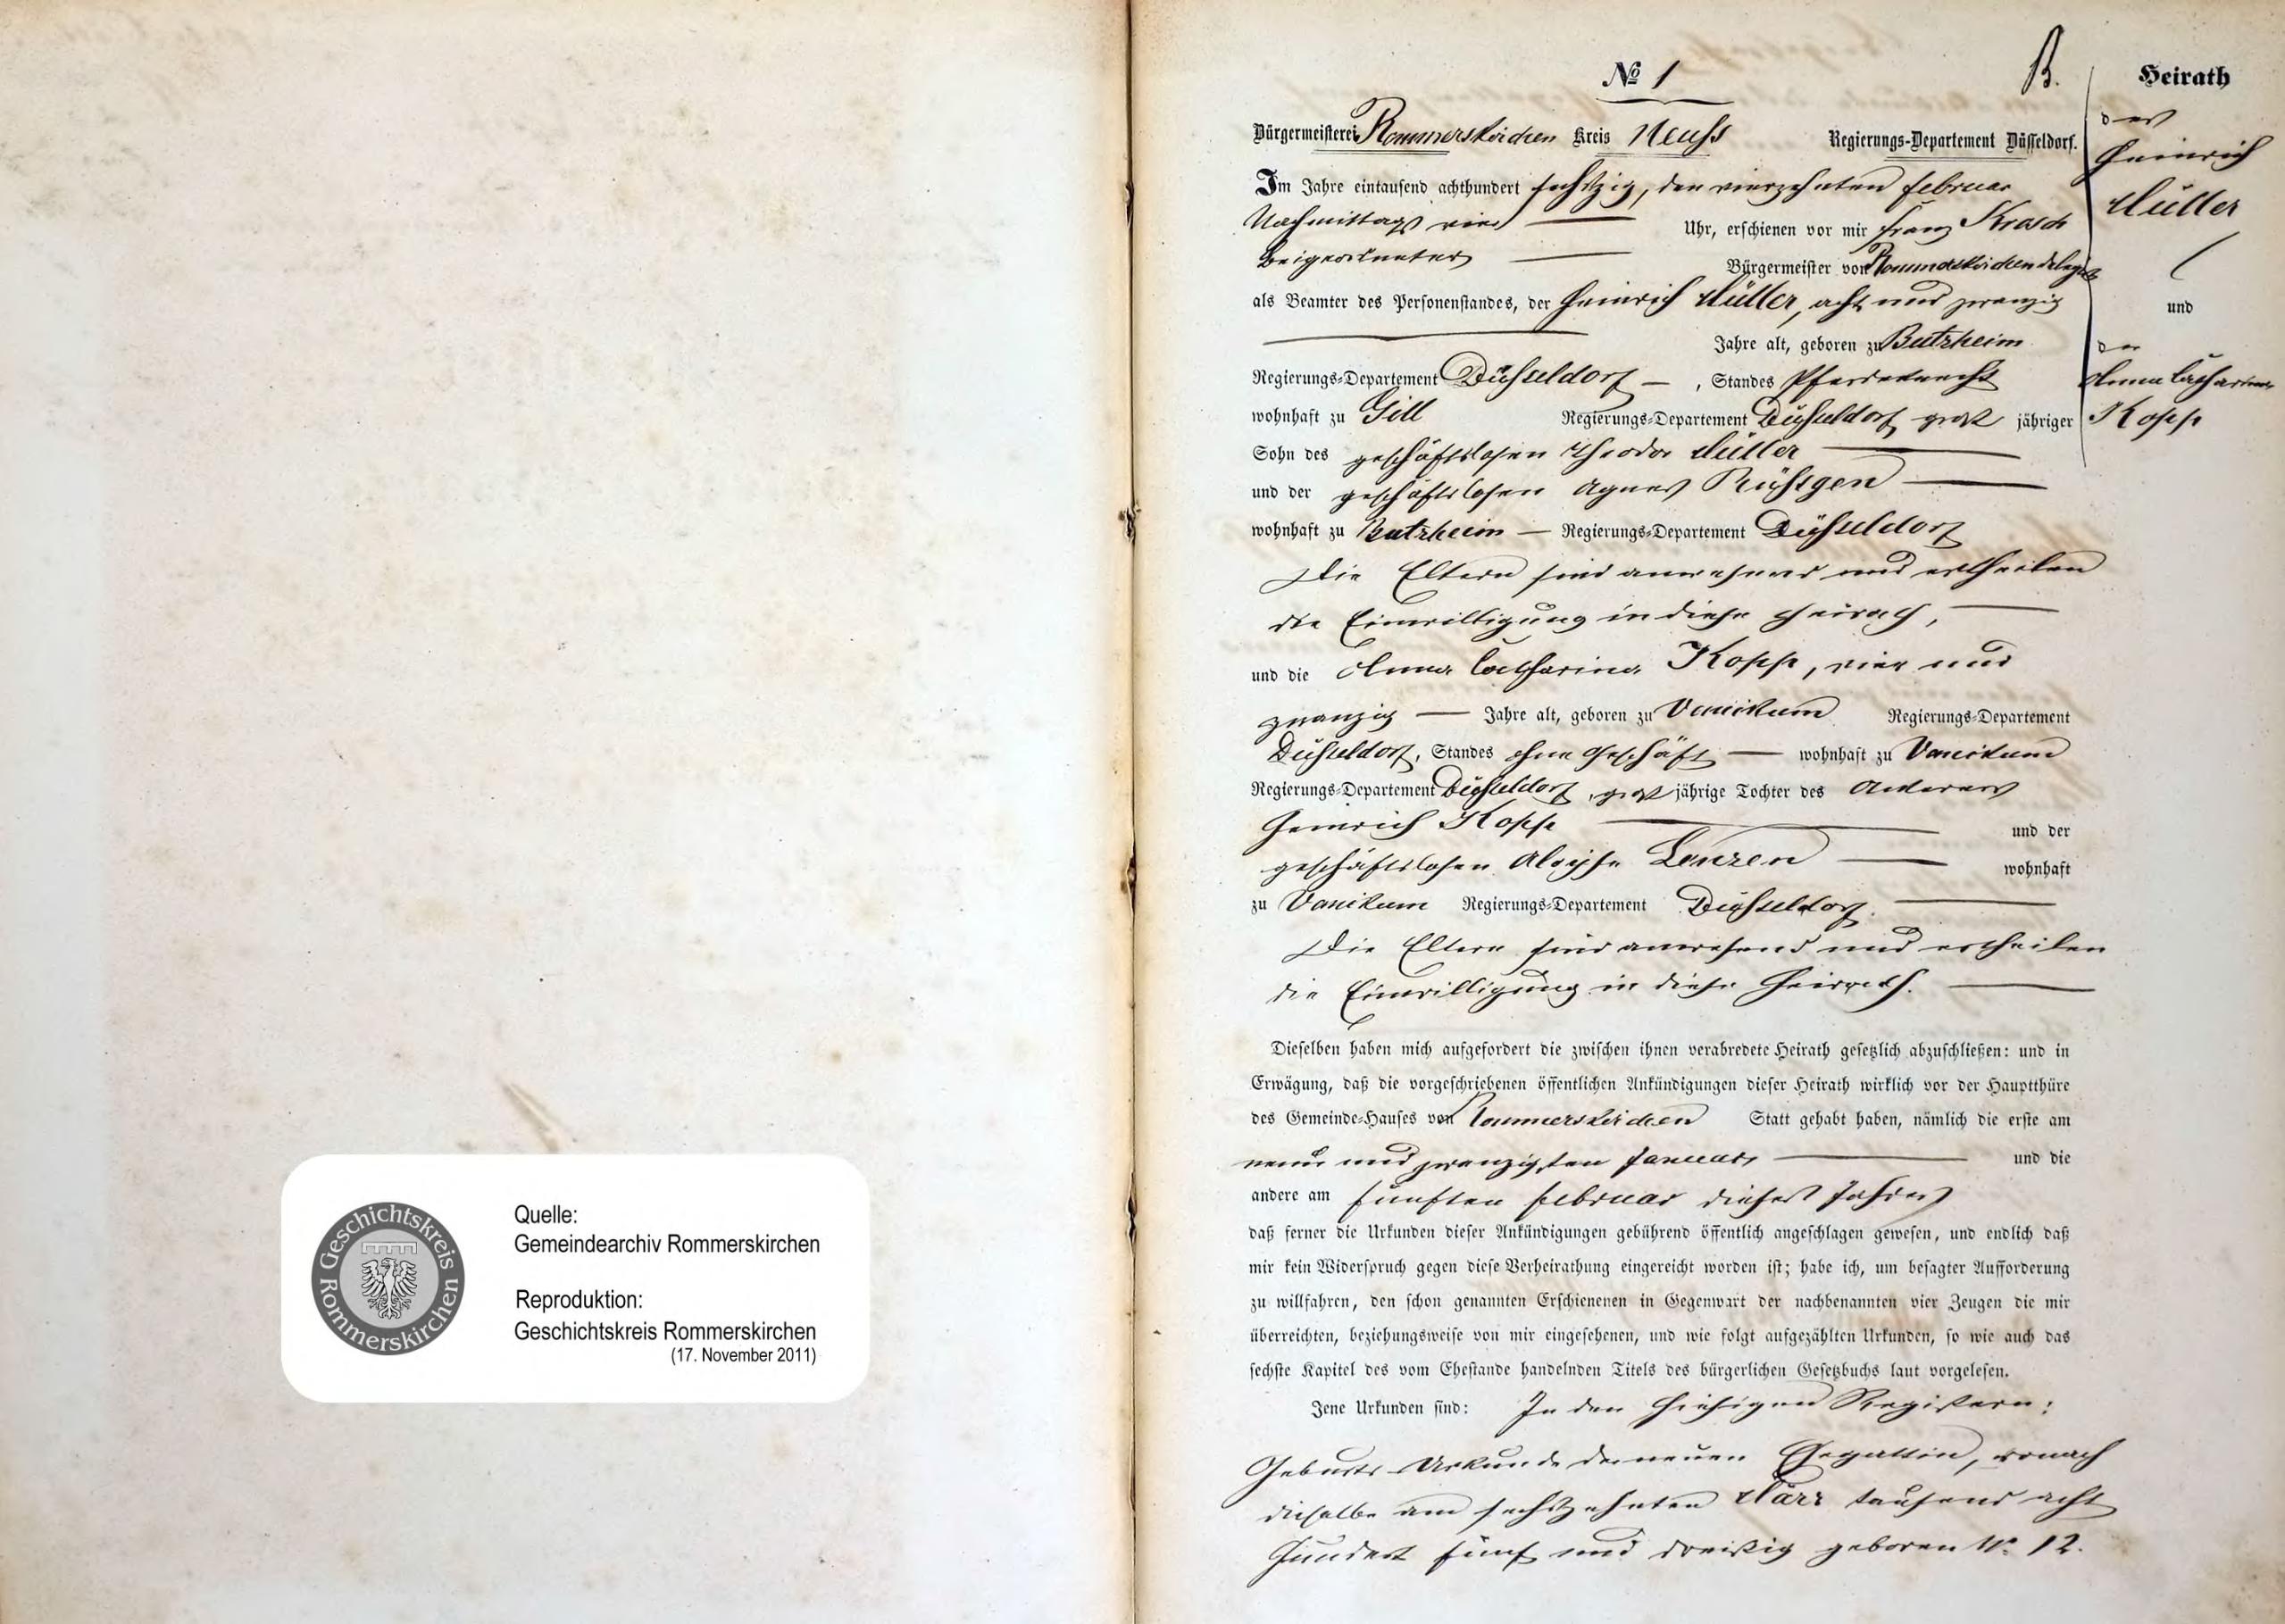 Geschichtskreis Rommerskirchen
Quelle:
Gemeindearchiv Rommerskirchen
Reproduktion:
Geschichtskreis Rommerskirchen
(17. November 2011)
№ 1
B.
Heirath
des
Heinrich
Müller
und
der
Anna Catharina
Kopp
Bürgermeisterei Rommerskirchen Kreis Neuß Regierungs-Departement Düsseldorf.
Im Jahre eintausend achthundert sechszig, den vierzehnten Februar
Nachmittags vier Uhr, erschienen vor mir Franz Krosch
Beigeordneter Bürgermeister von Rommerskirchen delegirt
als Beamter des Personenstandes, der Heinrich Müller, acht und zwanzig
Jahre alt, geboren zu Butzheim
Regierungs-Departement Düsseldorf, Standes Pferdeknecht
wohnhaft zu Gill Regierungs-Departement Düsseldorf groß jähriger
Sohn des geschäftslosen Theodor Müller
und der geschäftslosen Agnes Rüßgen
wohnhaft zu Butzheim Regierungs-Departement Düsseldorf
Die Eltern sind anwesend und ertheilen
die Einwilligung in diese Heirath,
und die Anna Catharina Kopp, vier und
zwanzig Jahre alt, geboren zu Vanikum Regierungs-Departement
Düsseldorf, Standes ohne Geschäft wohnhaft zu Vanikum
Regierungs-Departement Düsseldorf, groß jährige Tochter des Ackerers
Heinrich Kopp und der
geschäftslosen Aloyse Lenzen wohnhaft
zu Vanikum Regierungs-Departement Düsseldorf.
Die Eltern sind anwesend und ertheilen
die Einwilligung in diese Heirath.
Dieselben haben mich aufgefordert die zwischen ihnen verabredete Heirath gesetzlich abzuschließen: und in
Erwägung, daß die vorgeschriebenen öffentlichen Ankündigungen dieser Heirath wirklich vor der Hauptthüre
des Gemeinde-Hauses von Rommerskirchen Statt gehabt haben, nämlich die erste am
neun und zwanzigsten Januar, und die
andere am fünften Februar dieses Jahres
daß ferner die Urkunden dieser Ankündigungen gebührend öffentlich angeschlagen gewesen, und endlich daß
mir kein Widerspruch gegen diese Verheirathung eingereicht worden ist; habe ich, um besagter Aufforderung
zu willfahren, den schon genannten Erschienenen in Gegenwart der nachbenannten vier Zeugen die mir
überreichten, beziehungsweise von mir eingesehenen, und wie folgt aufgezählten Urkunden, so wie auch das
sechste Kapitel des vom Ehestande handelnden Titels des bürgerlichen Gesetzbuchs laut vorgelesen.
Jene Urkunden sind: In den hiesigen Registern:
Geburts-Urkunde der neuen Ehegattin, wonach
dieselbe am sechszehnten März tausend acht
hundert fünf und dreißig geboren N° 12.